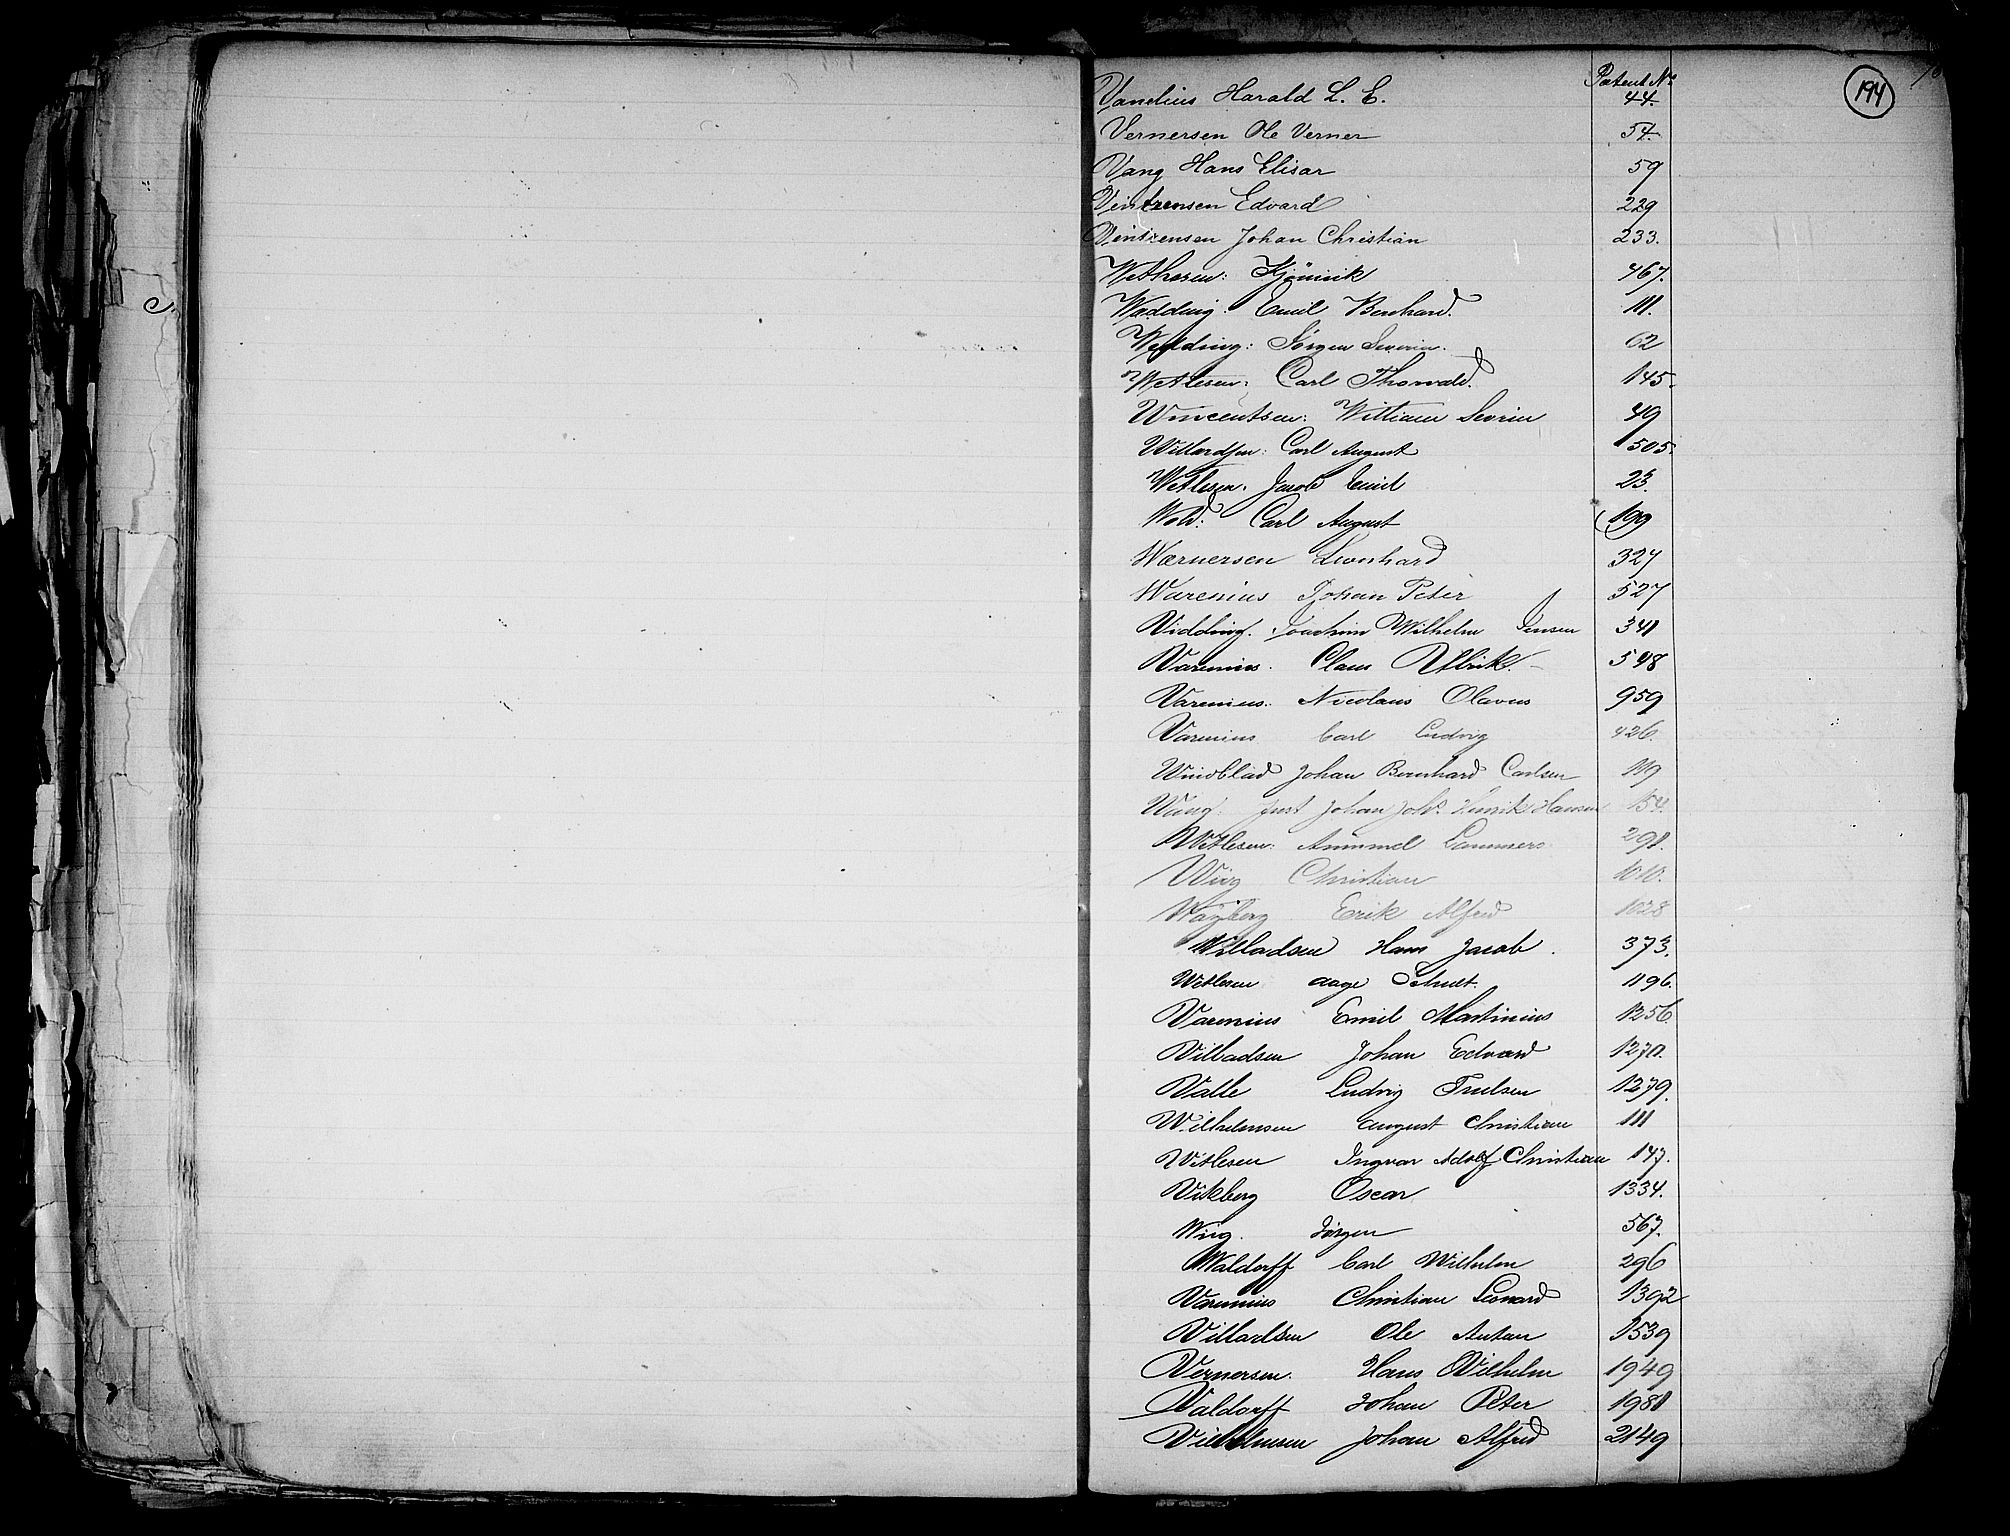 Patent No
194
Vanelius Harald L. E. 44.
Vernersen Ole Verner 54.
Vang Hans Elisar 59
Vintzensen Edvard 229
Vintzensen Johan Christian 233.
467.
Wedding: Emil Bernhard. 111.
Wedding: Jørgen Severin. 62
Wetlesen: Carl Thorvald. 145.
Wincentsen: William Sevrin 49
Willardsen: Carl August 505.
Wetlesen. Jacob Emil 23.
Wold: Carl August 199
Wærnersen Leonhard 327
Warenius Johan Peter 527
Vidding. Joachim Wilhelm Jensen 341
Varenius. Claus Ulrik. 548
Varenius. Nicolaus Olavus 959
Varenius Carl Ludvig 426.
Windblad Johan Bernhard Carlsen 119
Just Johan Johs Henrik Hansen 154.
Wetlesen: Lammers 291.
Wiig Christian 1010.
Erik Alfred 1028
Willadsen Hans Jacob. 373.
Wetlesen Aage 1196.
Varenius Emil Martinius 1256.
Villadsen Johan Edvard 1270.
Valle Ludvig Truelsen 1279.
Wilhelmsen August Christian 111
Wetlesen Ingvar Adolf Christian 147.
Vikberg Oscar 1334.
Wiig. Jørgen 567.
Waldorff Carl Wilhelm 296
Varenius Christian Leonard 1392
Villadsen Ole Anton 1539
Vernersen. Hans Vilhelm 1949
Valdorff Johan Peter 1981
Vilhelmsen Johan Alfred 2149